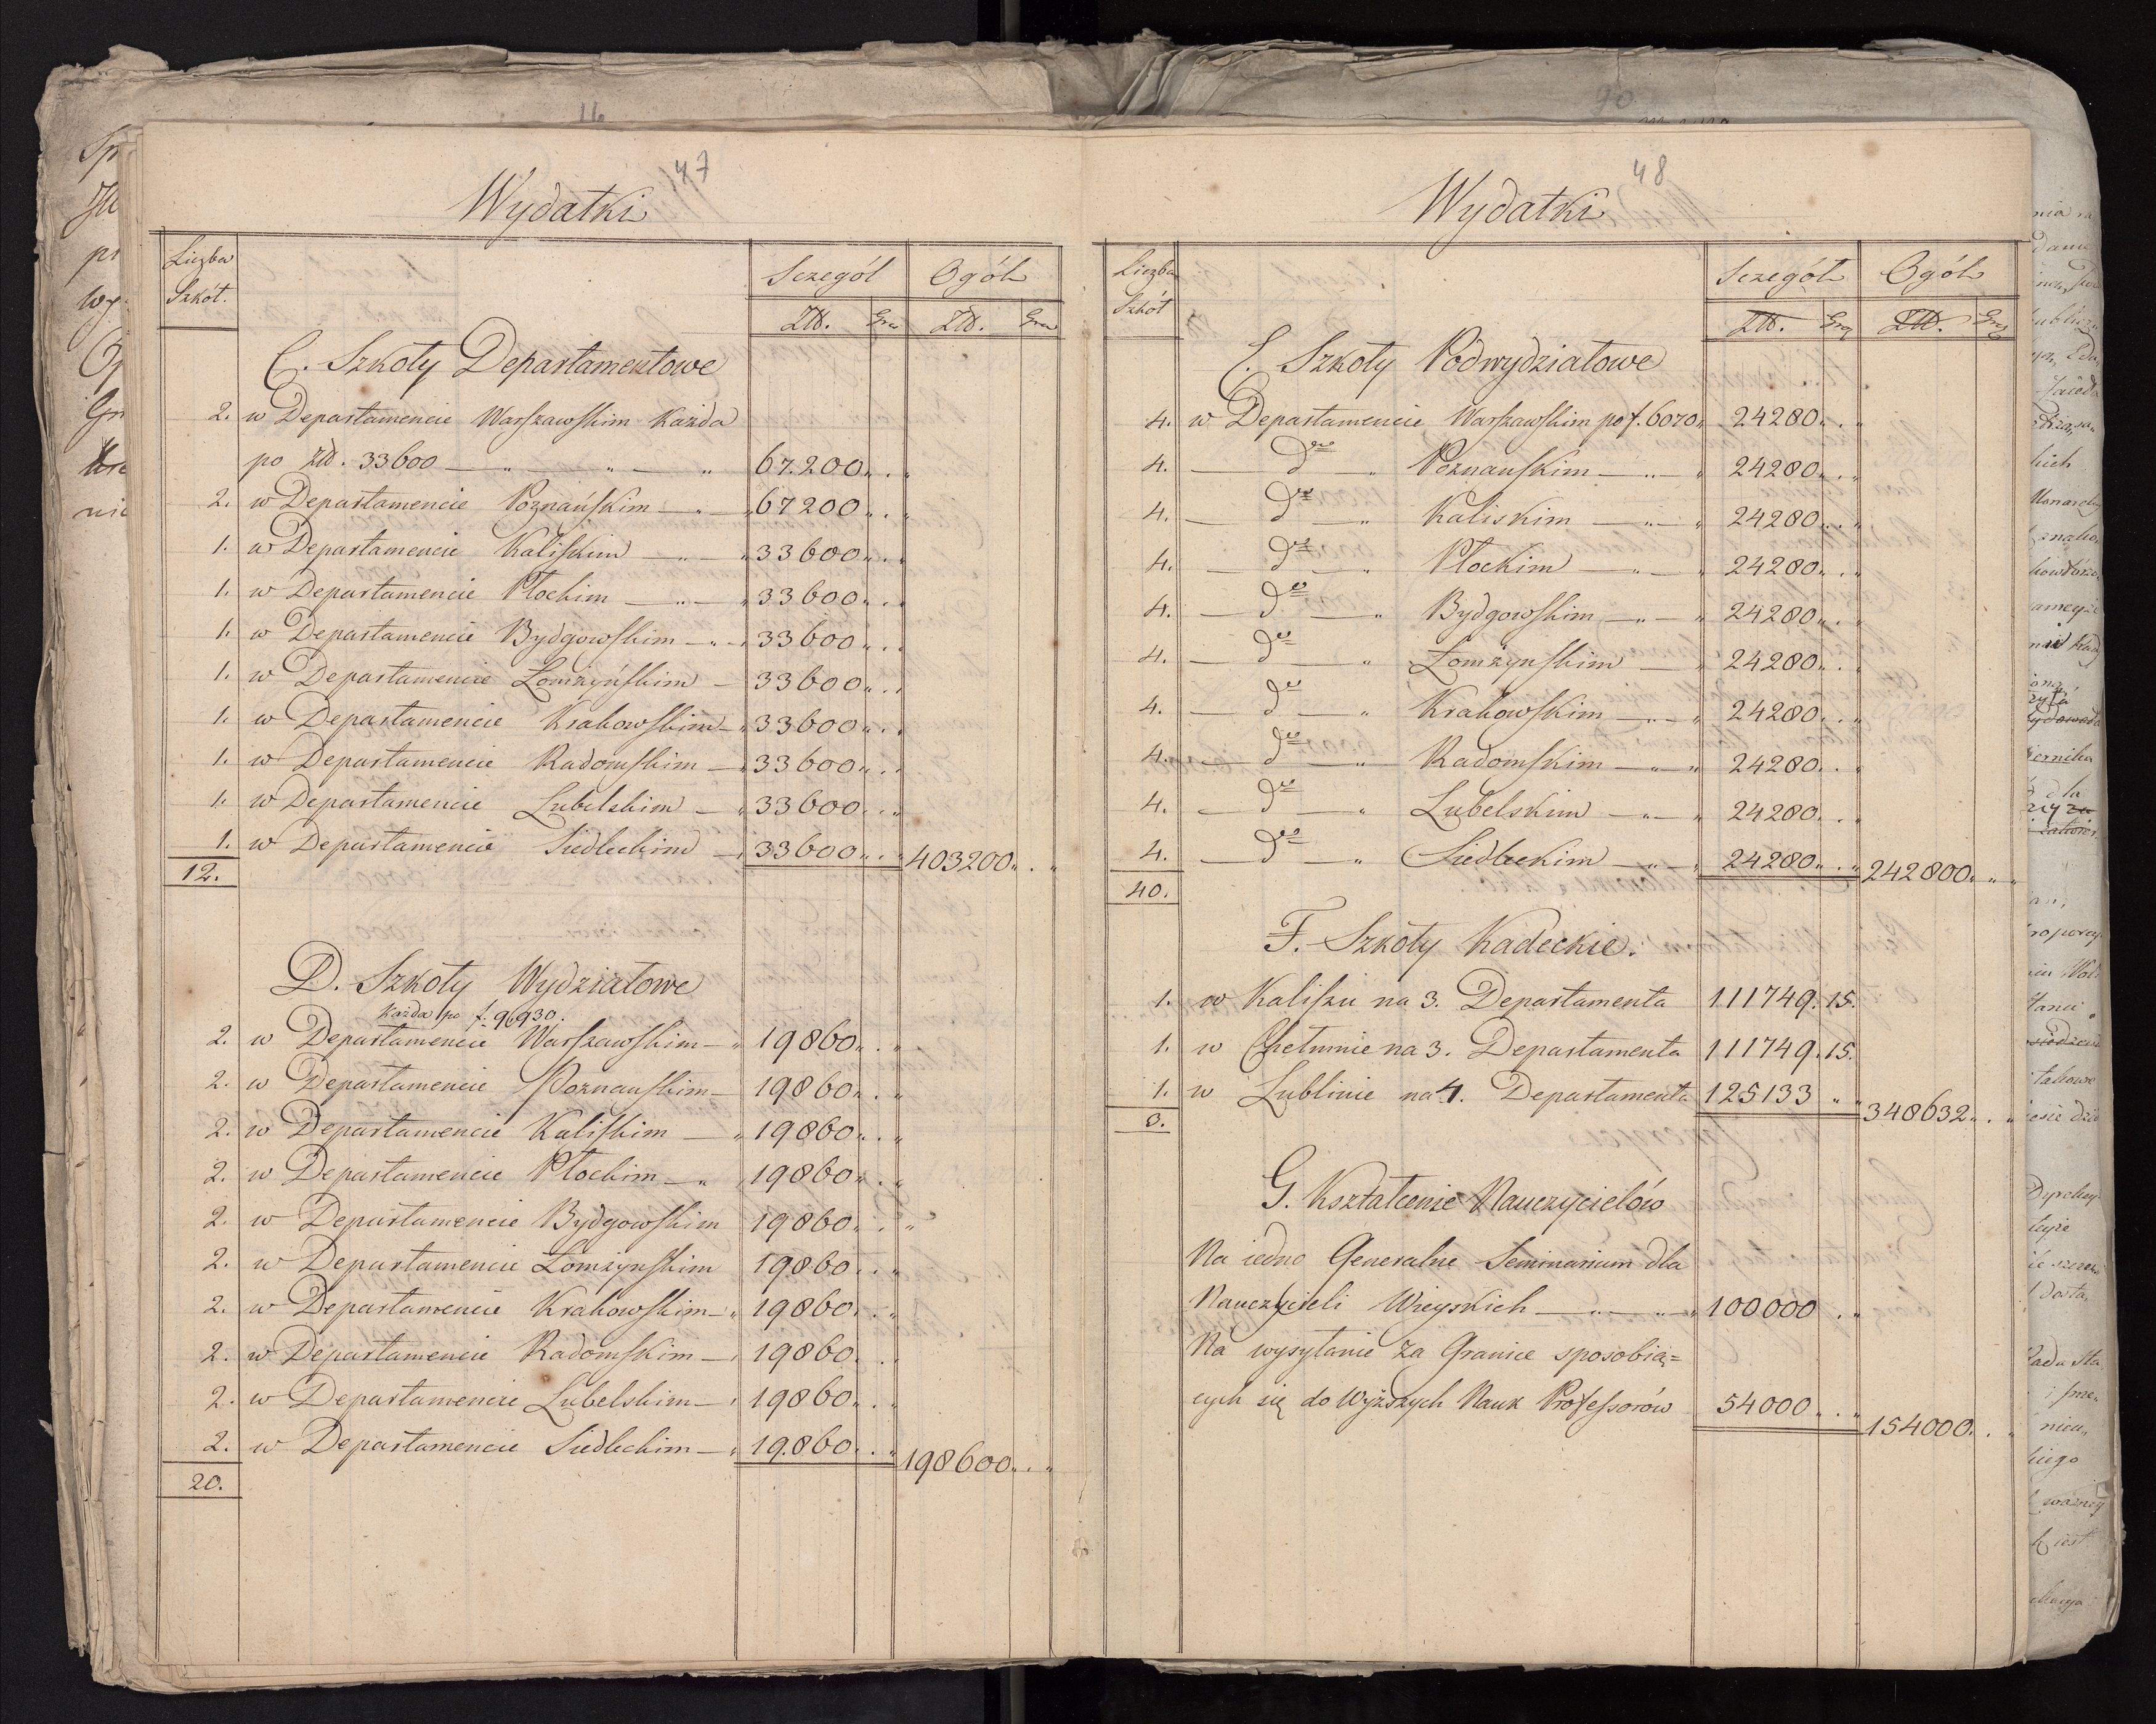 47
Wydatki
Liczba Szkół. Sczegół Ogół
Złt. Gro Złt. Gro
C. Szkoły Departamentowe
2. w Departamencie Warszawskim każda
po Złt. 33600 — „ — „ — „ 67.200 „ . „
2. w Departamencie Poznańskim — „ — „ 67200 „ . „
1. w Departamencie Kaliskim — „ — „ 33600 „ . „
1. w Departamencie Płockim — „ — „ 33600 „ . „
1. w Departamencie Bydgowskim — „ — „ 33600 „ . „
1. w Departamencie Łomżyńskim — 33600 „ . „
1. w Departamencie Krakowskim — „ 33600 „ . „
1. w Departamencie Radomskim — „ 33600 „ . „
1. w Departamencie Lubelskim — „ 33600 „ . „
1. w Departamencie Siedleckim — „ 33600 „ . „ 403200 „ . „
12.
D. Szkoły Wydziałowe
każda po f. 9930.
2. w Departamencie Warszawskim — „ 19860 „ . „
2. w Departamencie Poznanskim — 19860 „ . „
2. w Departamencie Kaliskim — „ 19860 „ . „
2. w Departamencie Płockim — „ 19860 „ . „
2. w Departamencie Bydgowskim 19860 „ . „
2. w Departamencie Łomżynskim 19860 „ . „
2. w Departamencie Krakowskim — „ 19860 „ . „
2. w Departamencie Radomskim — „ 19860 „ . „
2. w Departamencie Lubelskim — „ 19860 „ . „
2. w Departamencie Siedleckim — „ 19.860 „ . „ 198600 „ . „
20.
48
Wydatki
Liczba Szkół Sczegół Ogół
Złt. Gro Złt. Gro
E. Szkoły Podwydziałowe
4. w Departamencie Warszawskim po f. 6070 „ 24280 „ . „
4. — dto — „ Poznanskim — „ — „ 24280 „ . „
4. — dto — „ Kaliskim — „ — „ 24280 „ . „
4. — dto — „ Płockim — „ — „ 24280 „ . „
4. — dto — „ Bydgowskim — „ — „ 24280 „ . „
4. — dto — „ Łomżynskim — „ 24280 „ . „
4. — dto — „ Krakowskim — „ — „ 24280 „ . „
4. — dto — „ Radomskim — „ — „ 24280 „ . „
4. — dto — „ Lubelskim — „ — „ 24280 „ . „
4. — dto — „ Siedleckim — „ — „ 24280 „ . „ 242800 „ „ „
40.
F. Szkoły Kadeckie.
1. w Kaliszu na 3. Departamenta 111749. 15.
1. w Chełmnie na 3. Departamenta 111749. 15.
1. w Lublinie na 4. Departamenta 125133 „ „ 348632 „ . „
3.
G. Kształcenie Nauczycielów
Na iedno Generalne Seminarium dla
Nauczycieli Wieyskich — „ — „ — „ 100000 . „
Na wysyłanie za Granice sposobią=
cych się do Wyższych Nauk Professorów 54000 „ . „ 154000 „ . „